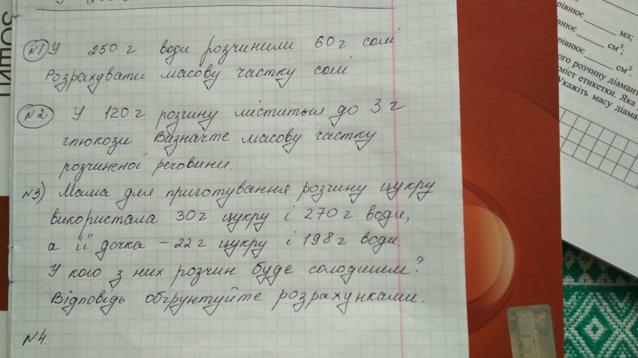 N1) У 250 г води розчинили 60 г солі
Розрахувати масову частку солі
N2 У 120 г розчину міститься до 3 г
глюкози Визначте масову частку
розчиненої речовини.
N3) Мама для приготування розчину цукру
використала 30 г цукру і 270 г води,
а її дочка – 22 г цукру і 198 г води.
У кого з них розчин буде солодшим?
Відповідь обґрунтуйте розрахунками.
N4.
ЗОШИТ
рівнює ___ мл;
рівнює ___ см³;
рівнює ___ см³
ого розчину діамант
міст етикетки. Яка
Укажіть масу діама